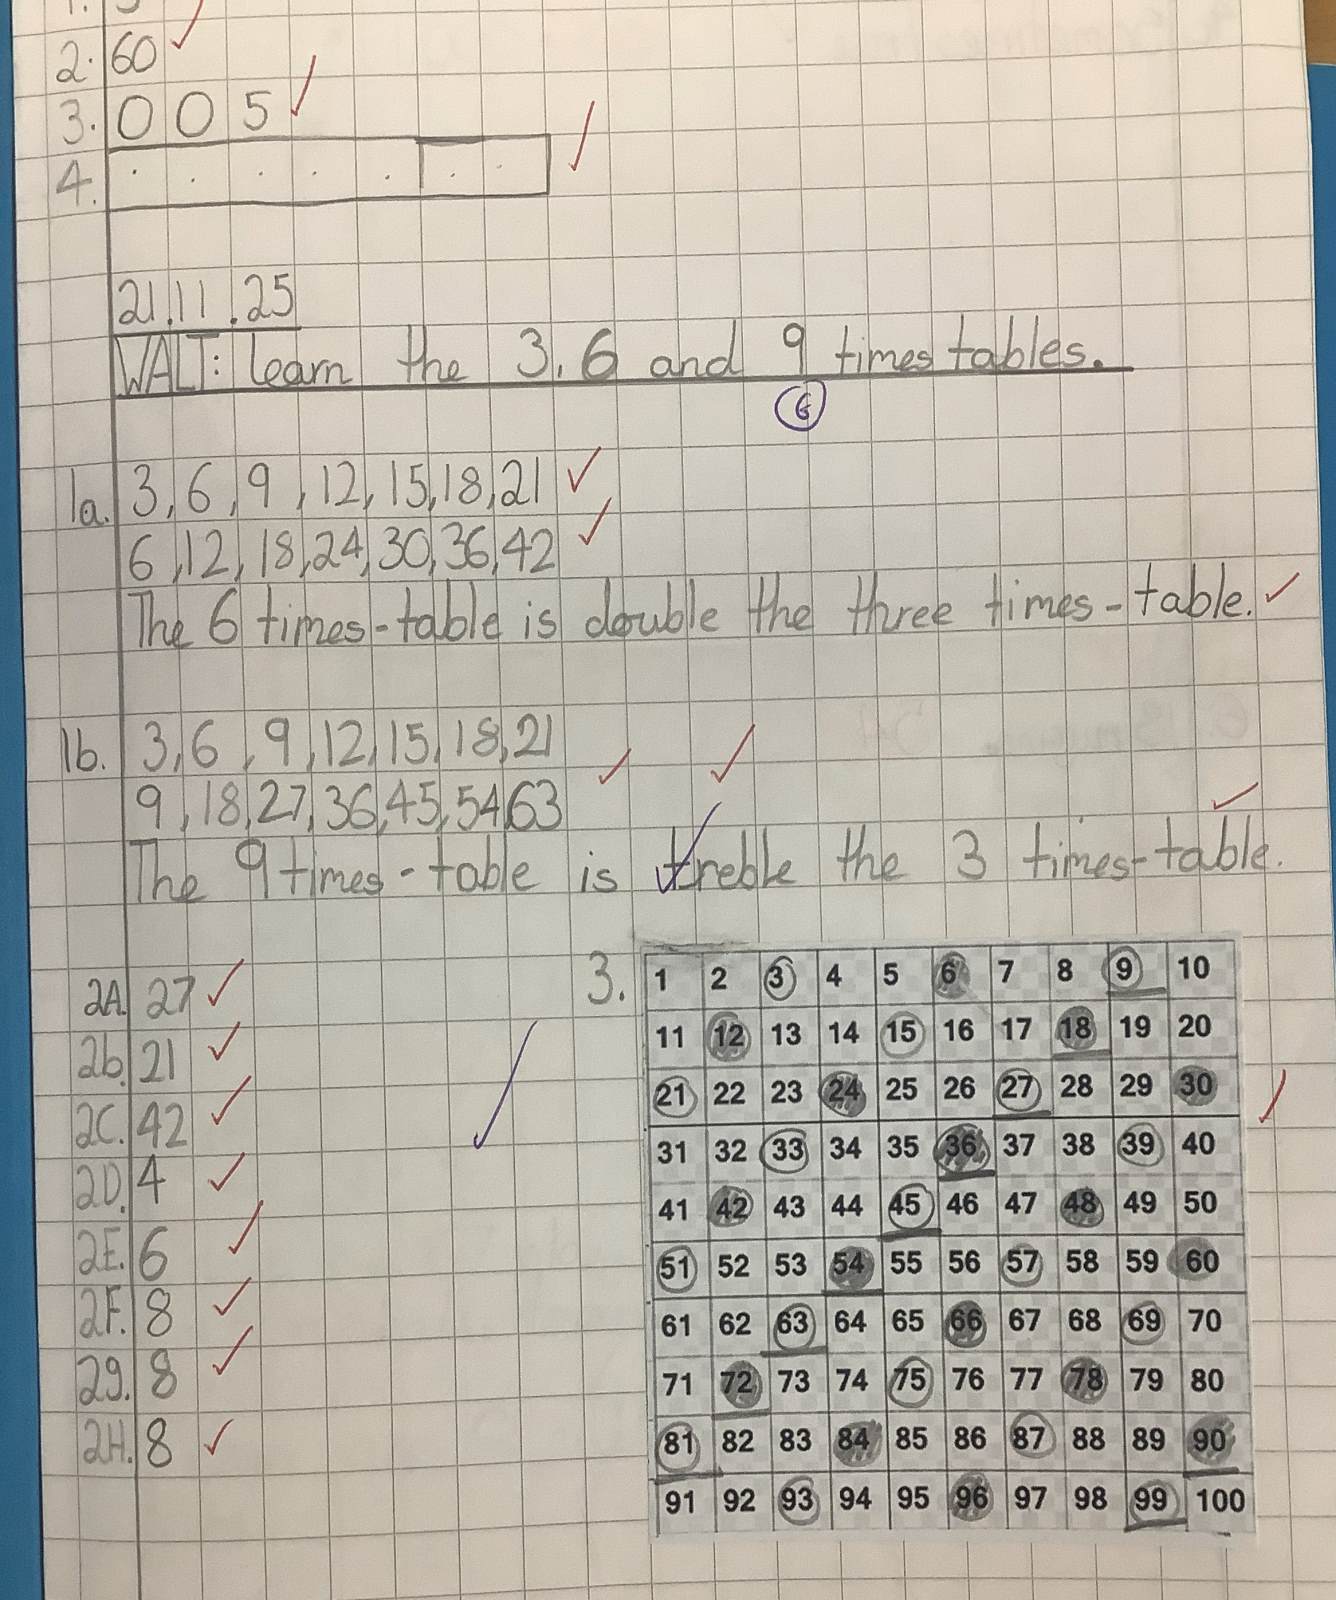 2. 60
3. 0 0 5
4.
21.11.25
WALT: learn the 3, 6 and 9 times tables.
G
1a. 3, 6, 9, 12, 15, 18, 21
6, 12, 18, 24, 30, 36, 42
The 6 times-table is double the three times-table.
1b. 3, 6, 9, 12, 15, 18, 21
9, 18, 27, 36, 45, 54, 63
The 9 times-table is treble the 3 times-table.
2A. 27
2b. 21
2C. 42
2D. 4
2E. 6
2F. 8
2g. 8
2H. 8
3.
1 2 3 4 5 6 7 8 9 10
11 12 13 14 15 16 17 18 19 20
21 22 23 24 25 26 27 28 29 30
31 32 33 34 35 36 37 38 39 40
41 42 43 44 45 46 47 48 49 50
51 52 53 54 55 56 57 58 59 60
61 62 63 64 65 66 67 68 69 70
71 72 73 74 75 76 77 78 79 80
81 82 83 84 85 86 87 88 89 90
91 92 93 94 95 96 97 98 99 100